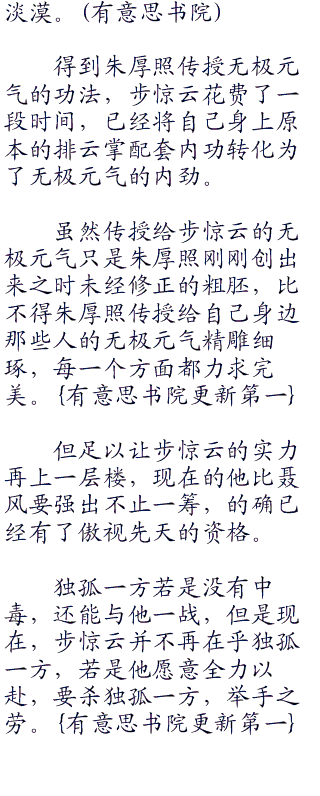 淡漠。(有意思书院)
得到朱厚照传授无极元
气的功法，步惊云花费了一
段时间，已经将自己身上原
本的排云掌配套内功转化为
了无极元气的内劲。
虽然传授给步惊云的无
极元气只是朱厚照刚刚创出
来之时未经修正的粗胚，比
不得朱厚照传授给自己身边
那些人的无极元气精雕细
琢，每一个方面都力求完
美。{有意思书院更新第一}
但足以让步惊云的实力
再上一层楼，现在的他比聂
风要强出不止一筹，的确已
经有了傲视先天的资格。
独孤一方若是没有中
毒，还能与他一战，但是现
在，步惊云并不再在乎独孤
一方，若是他愿意全力以
赴，要杀独孤一方，举手之
劳。{有意思书院更新第一}